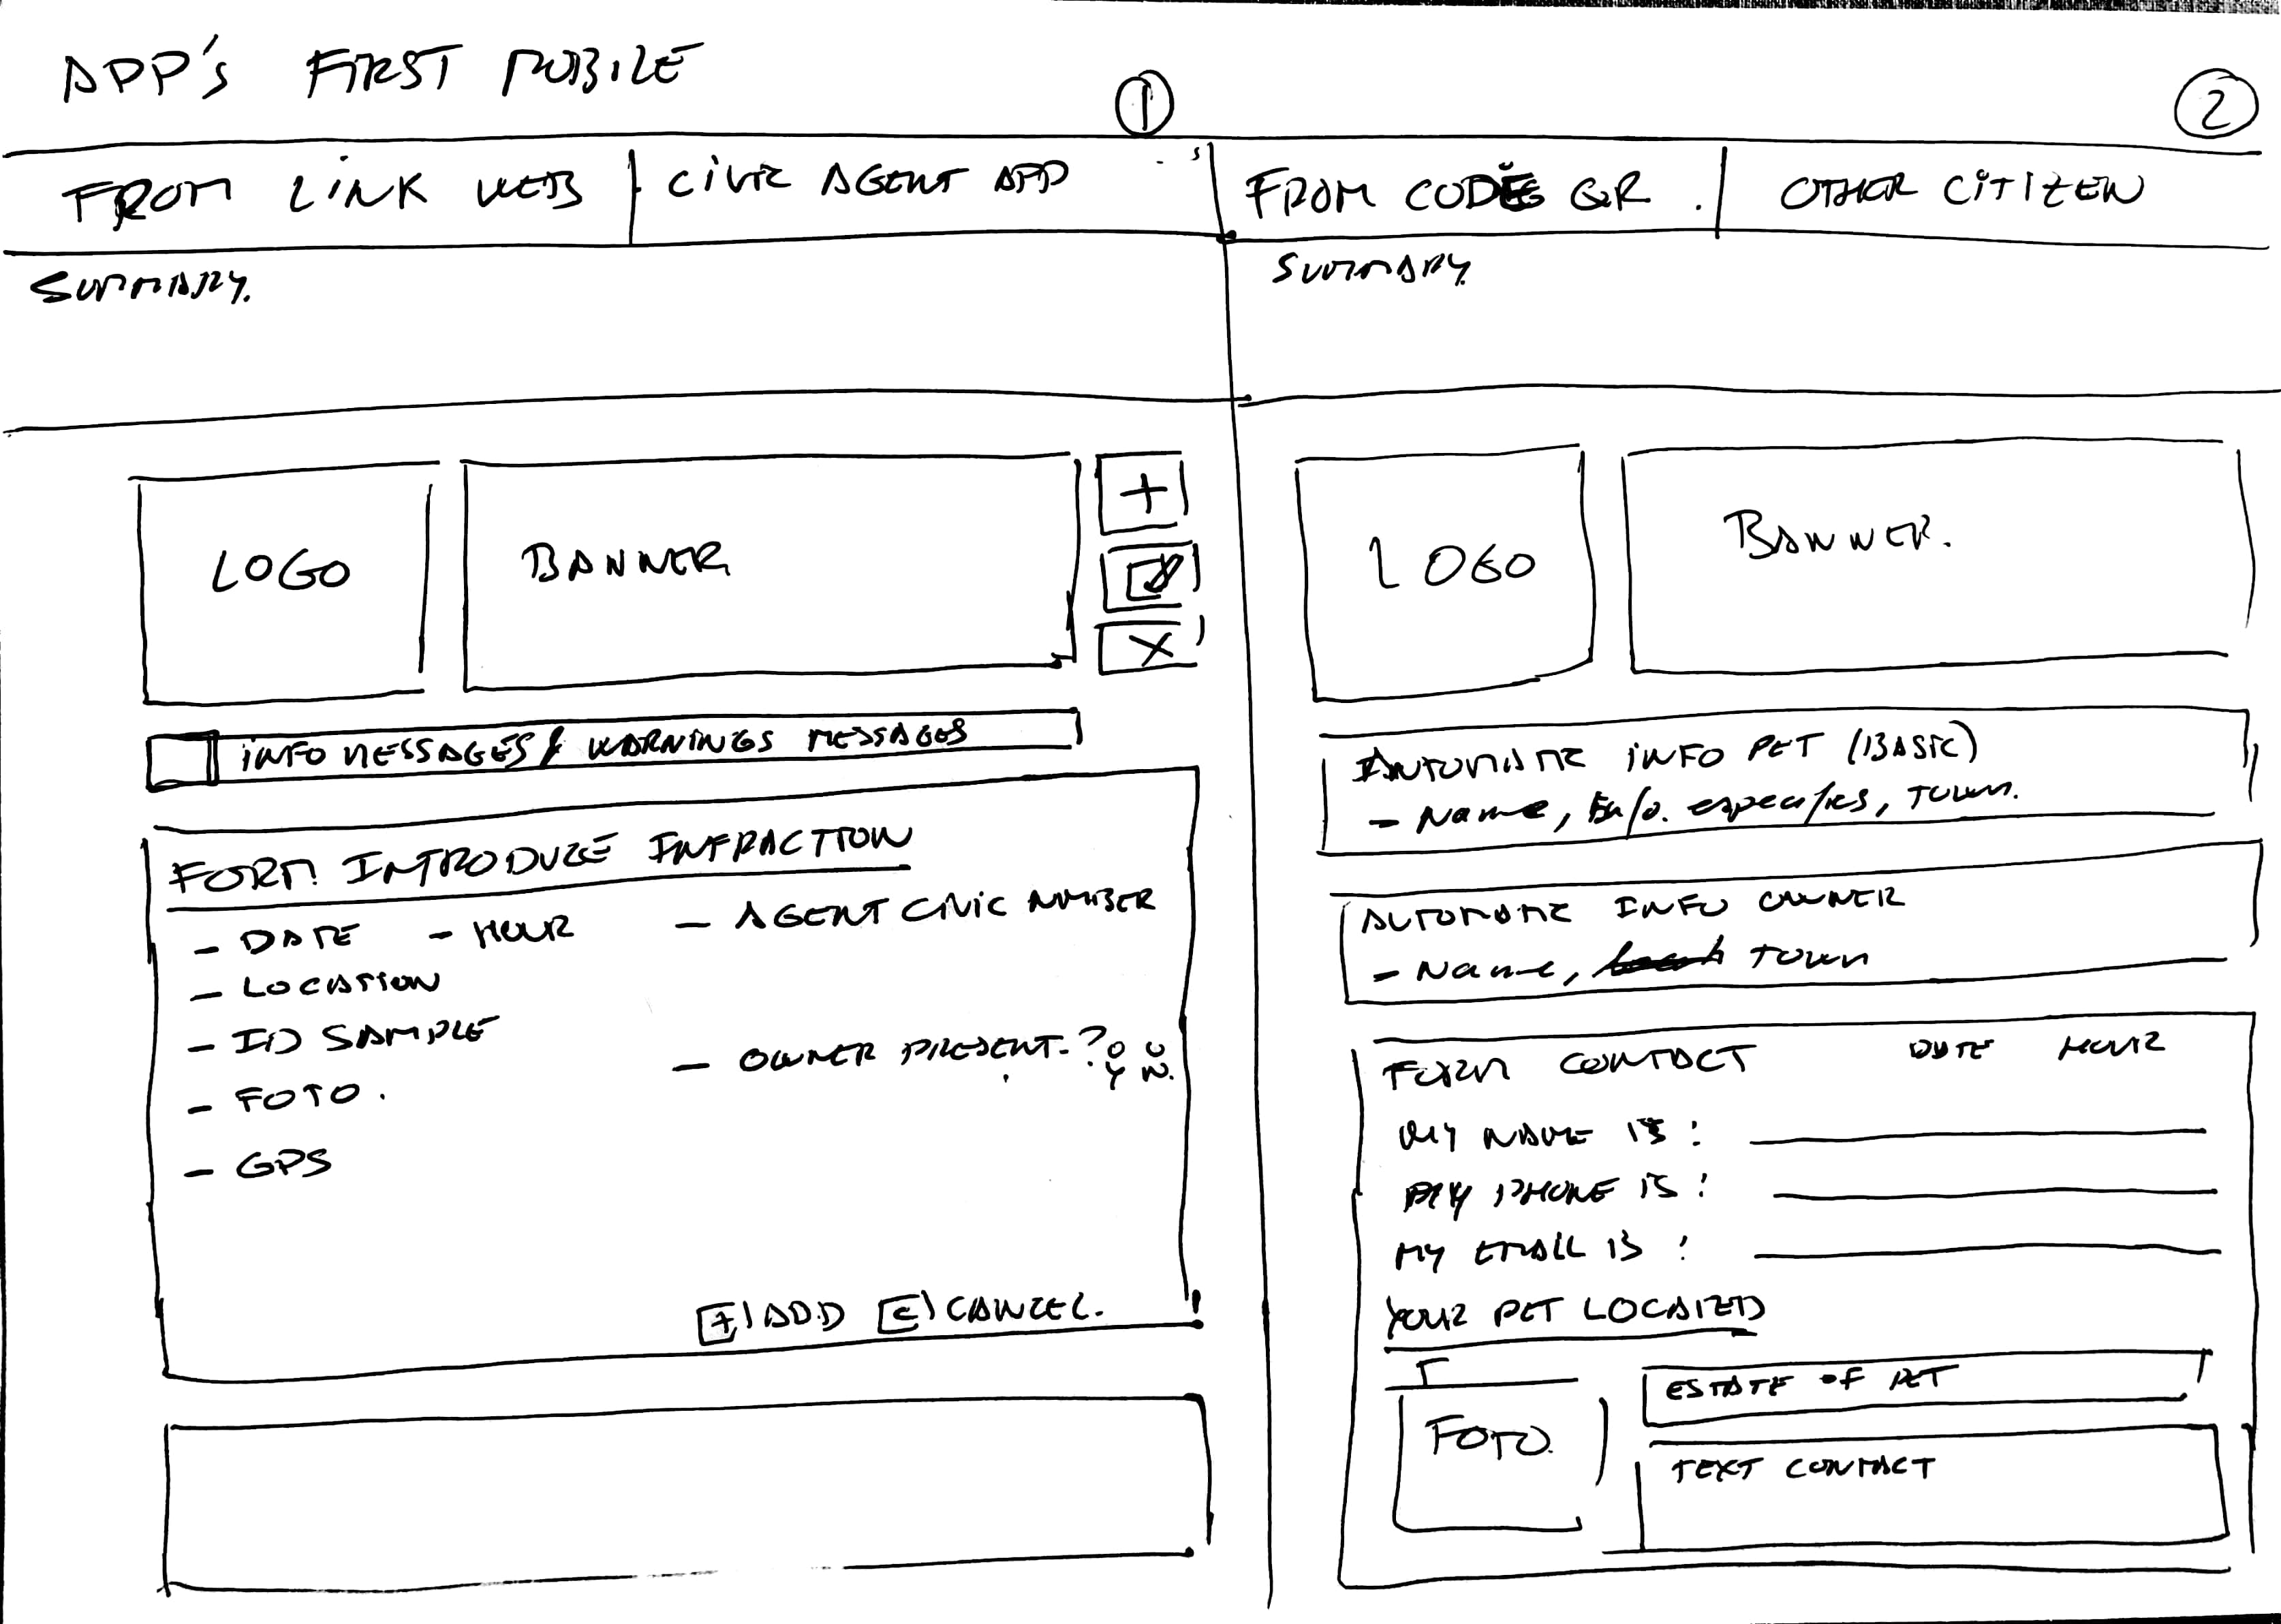 APP's FIRST MOBILE
1
2
FROM LINK WEB
CIVIC AGENT APP
FROM CODES QR.
OTHER CITIZEN
SUMMARY.
SUMMARY
LOGO
BANNER
+
X
INFO MESSAGES / WARNINGS MESSAGES
FORM INTRODUCE INFRACTION
- DATE - HOUR - AGENT CIVIC NUMBER
- LOCATION
- ID SAMPLE
- OWNER PRESENT-?
Y N.
- FOTO.
- GPS
+ ADD C CANCEL.
LOGO
BANNER.
AUTOMATIC INFO PET (BASIC)
- Name, town.
AUTOMATIC INFO OWNER
- Name, Town
FORM CONTACT DATE HOUR
MY NAME IS:
MY PHONE IS:
MY EMAIL IS:
YOUR PET LOCATED
FOTO.
ESTATE OF PET
TEXT CONTACT